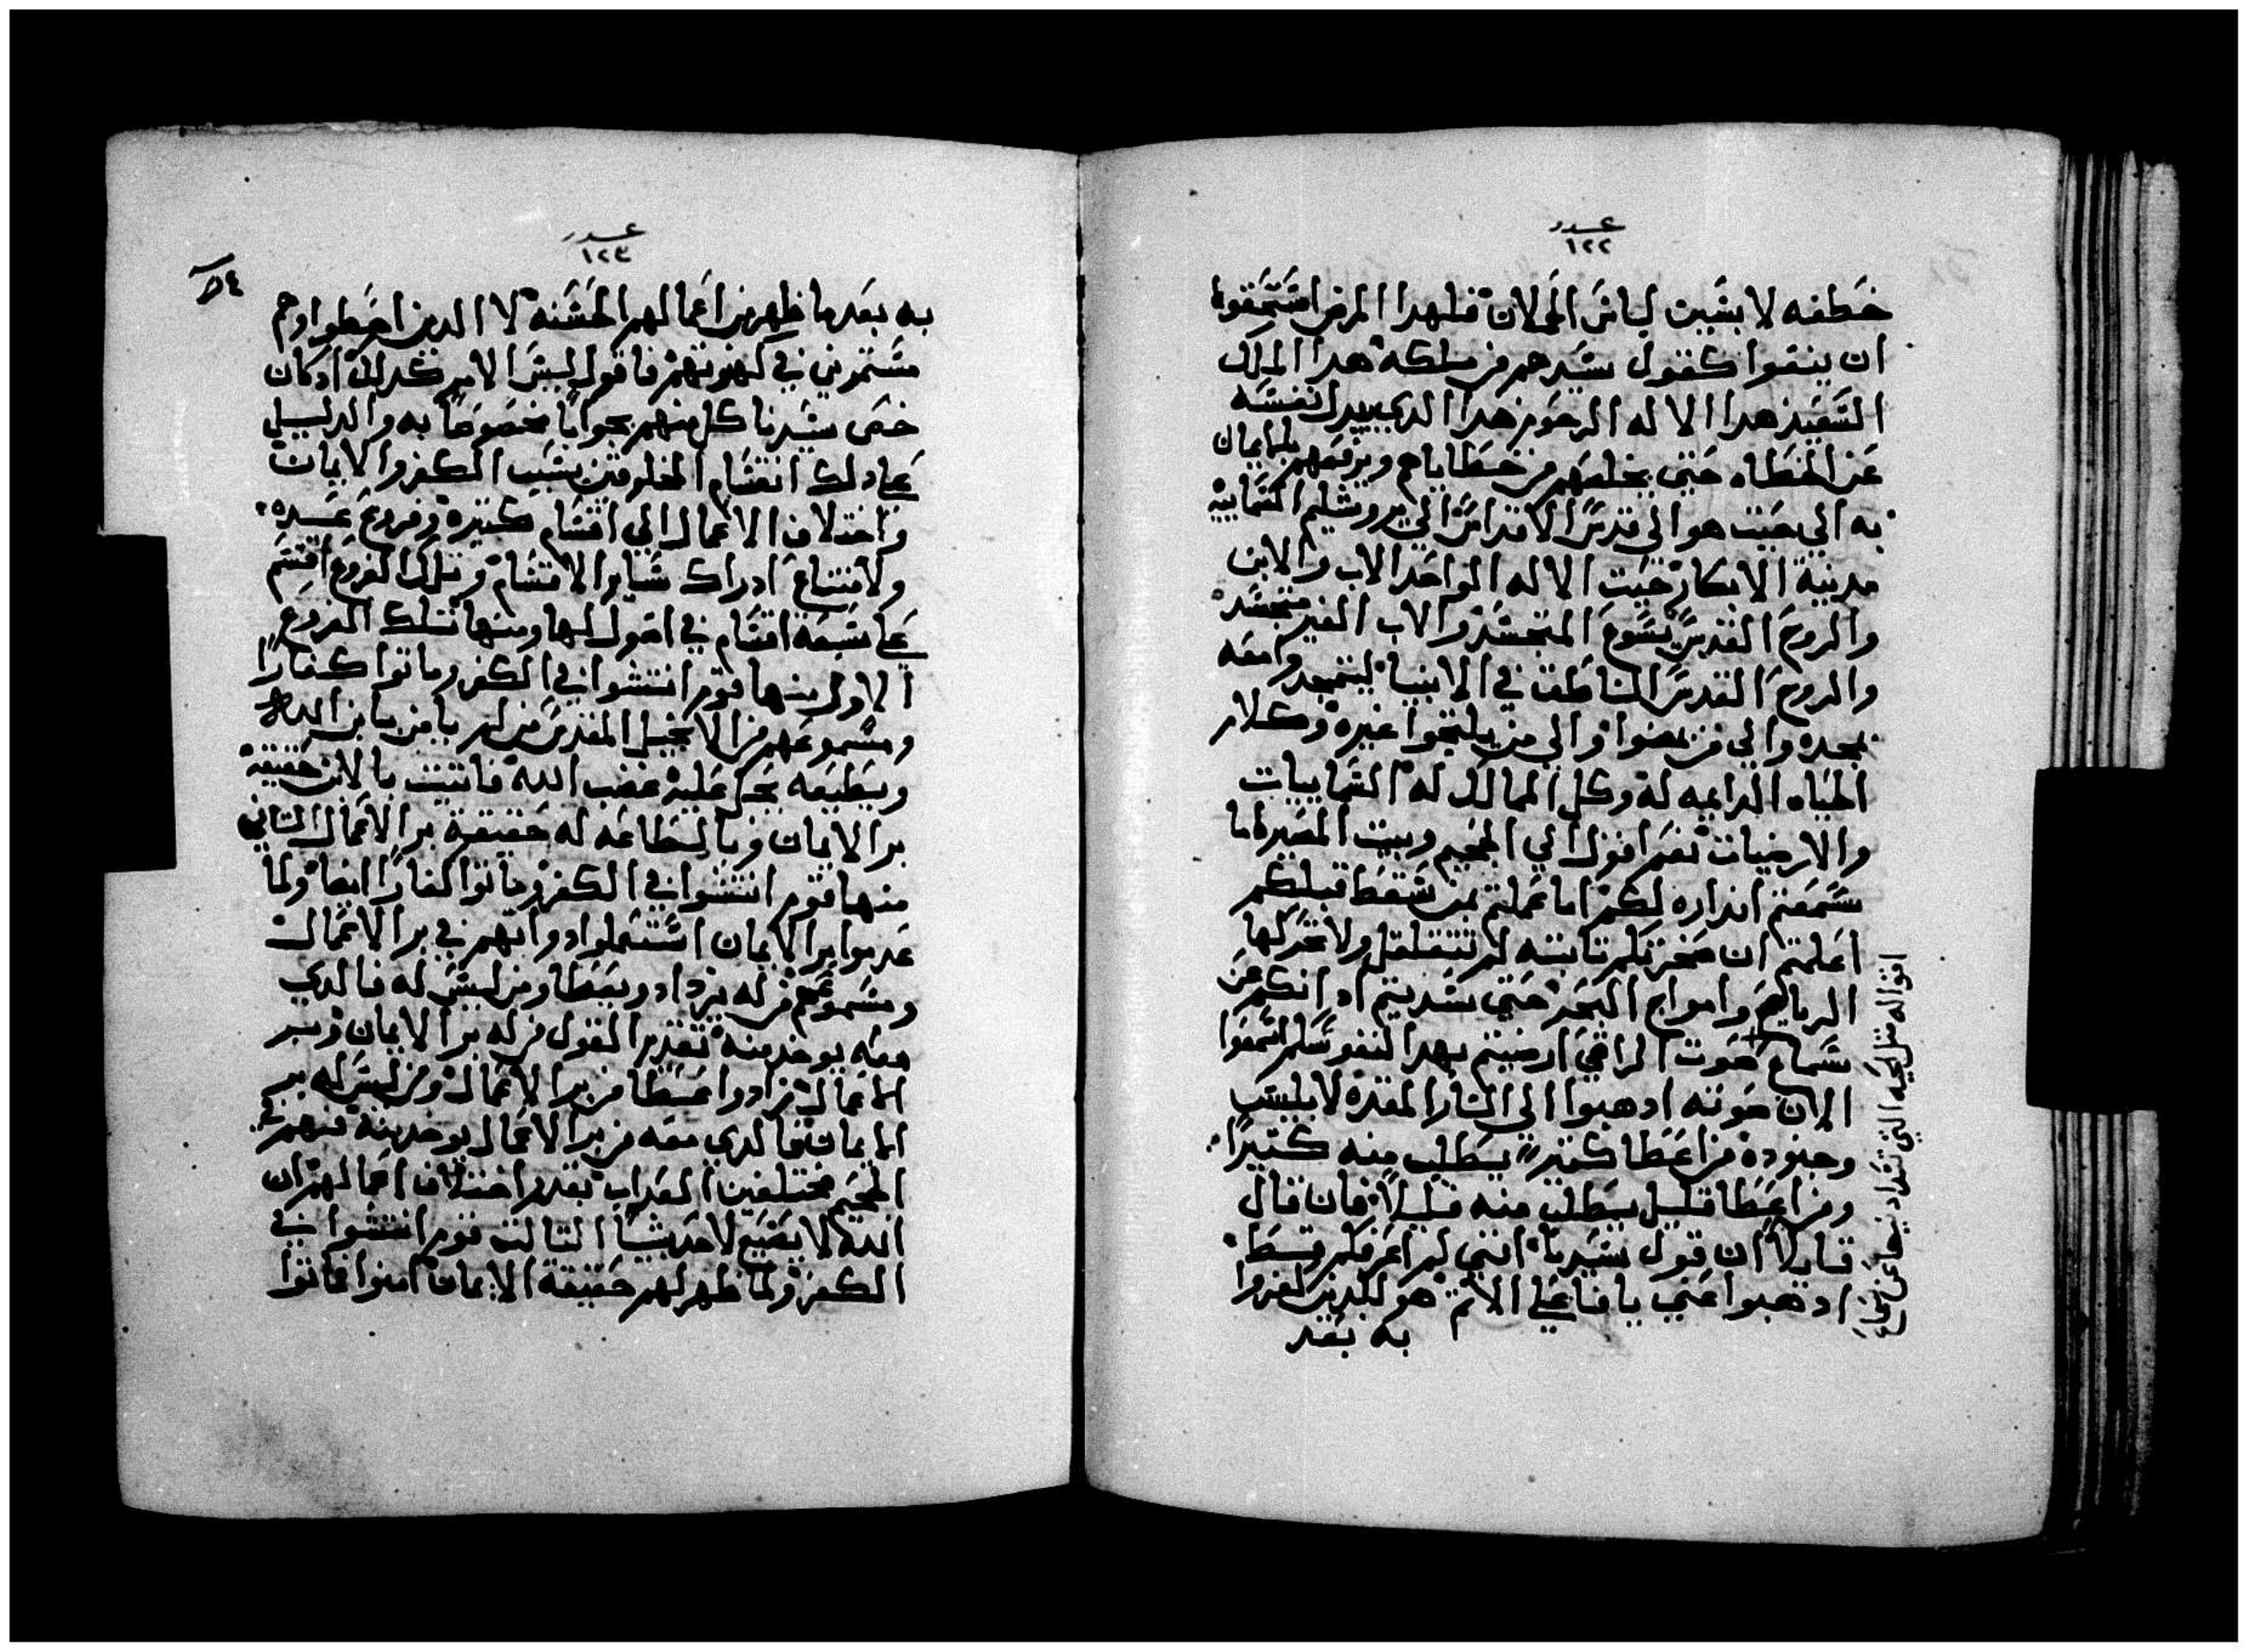 عدد
١٢٢
خطفه لا بشبين لباس الحملان فلهدا المرض استحقوا
ان ينفوا كقول سيدهم من ملكة هدا الملك
السعيد هدا الاله الرحوم هدا الدي يبدل نفسه
عن الخطاه حتى يخلصهم من خطاياهم ويرفعهم بالايمان
به الي حيت هو الي قدس الاقداس الي يروشليم السماييه
مدينة الابكار حيت الاله الواحد الاب والابن
والروح القدس يسوع المتجسد والاب الغير متجسد
والروح القدس الناطق في الانبيا ليتمجد وامعه
بمجده والي من يمضوا والي من يلتجوا غيره وكلام
الحياه الدايمه له وكل الممالك له السماييات
والارضيات نعم اقول الي الجحيم وبيت المصير اما
سمعتم انداره لكم اما عملتم بمن سقط قبلكم
اعلمتم ان صخرتكم تابته لم تتقلقل ولا تحركها
الرياح وامواج البحر حتي سديتم ادانكم عن
سماع صوت الراقي ارضيتم بهدا لنفوسكم اسمعوا
الان صوته ادهبوا الي النار المعده لابليس
وجنوده من اعطا كتير يطلب منه كتيرا
ومن اعطا قليل يطلب منه قليلا فان قال
قايلا ان قول سيدنا انني لم اعرفكم قط
ادهبوا عني يا فاعلي الاتم هو للدين كفروا
به بعد
اقواله متل الحيه التي تسد ادنيها عن سماع
عدد
١٢٣
٥٤
به بعد ما ظهر من اعمالهم الحسنه لا الدين اخطوا وهم
مستمرين في كهنوتهم فاقول ليس الامر كدلك اد كان
خص سيدنا كل منهم بجوابا مخصوصا به والدليل
علي دلك انقسام المخلوقين بسبب الكفر والايمان
واختلاف الاعمال الي اقسام كتيرة وفروع عسيره
ولامتناع ادراك ساير الاقسام وتلك الفروع اقسم
علي سبعة اقسام في اصول لها ومنها تسلك الفروع
الاول منها قوم انتشوا في الكفر وماتوا كفارا
ومسموعهم من الانجيل المقدس من لم يامن بابن الله
ويطيعه يحل عليه غضب الله فاتبت بالابن حقيقة
بر الايمان وبالطاعه له حقيقة بر الاعمال التاني
منها قوم انتشوا في الكفر وماتوا كفارا ايضا ولما
عدموا بر الايمان استعملوا دواتهم في بر الاعمال
ومسموعهم من له يزداد ويعطا ومن ليس له فالدي
معه يوخد منه تقدير القول من له بر الايمان وبر
الاعمال زادوا عطا من بر الاعمال ومن ليس له بر
الايمان فالدي معه من بر الاعمال يوخد منه فهم في
الجحيم مختلفين العداب بقدر اختلاف اعمالهم لان
الله لا يضيع لاحد شيا التالت قوم انتشوا في
الكفر ولما ظهر لهم حقيقة الايمان امنوا فماتوا